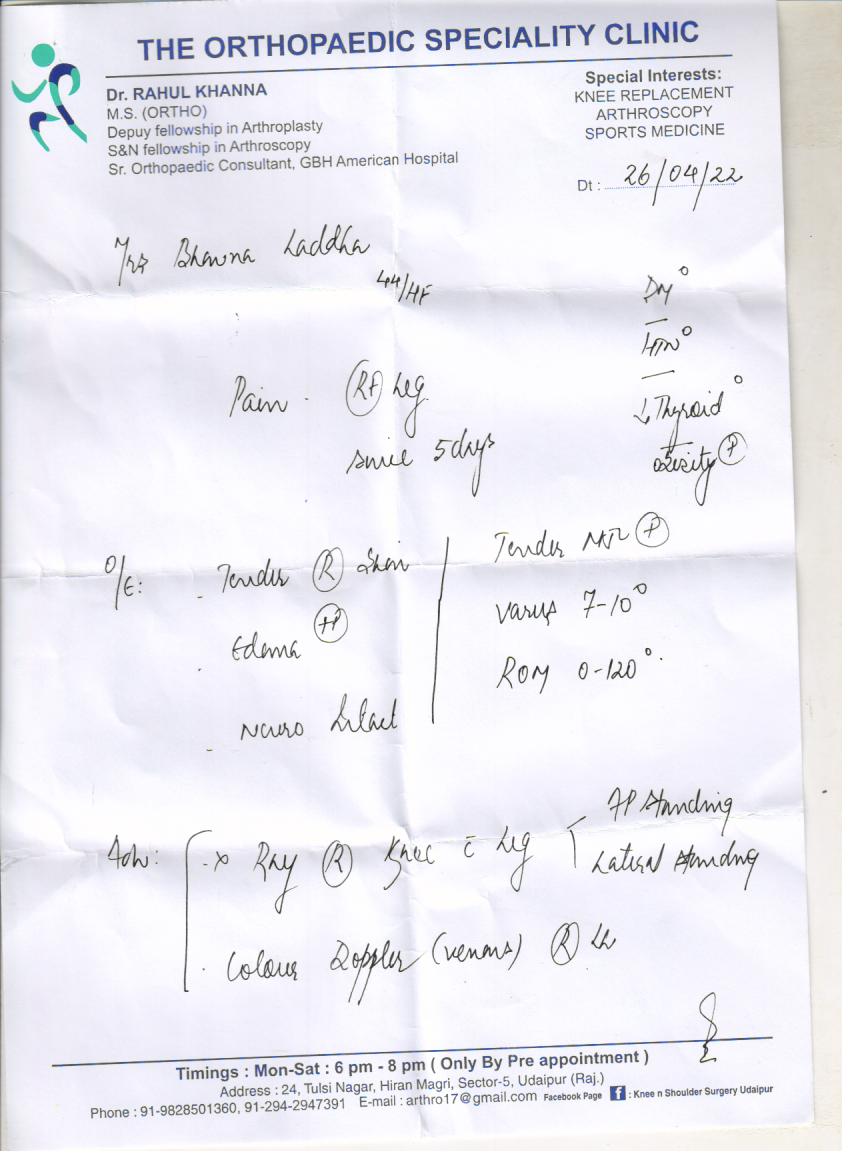 THE ORTHOPAEDIC SPECIALITY CLINIC
Dr. RAHUL KHANNA
M.S. (ORTHO)
Depuy fellowship in Arthroplasty
S&N fellowship in Arthroscopy
Sr. Orthopaedic Consultant, GBH American Hospital
Special Interests:
KNEE REPLACEMENT
ARTHROSCOPY
SPORTS MEDICINE
Dt : 26/04/22
Mrs Bhawna Laddha
44/
DM°
HTN°
↓ Thyroid°
obesity (P)
Pain (Rt) Leg
since 5 days
O/E:
- Tender (R) Shin
Edema
- Neuro Intact
Tender MJL (P)
Varus 7-10°
ROM 0-120°
Adv:
X Ray (R) Knee c̄ Leg
AP Standing
Lateral Standing
Colour Doppler (venous) (R)
Timings : Mon-Sat : 6 pm - 8 pm ( Only By Pre appointment )
Address : 24, Tulsi Nagar, Hiran Magri, Sector-5, Udaipur (Raj.)
Phone : 91-9828501360, 91-294-2947391 E-mail : arthro17@gmail.com Facebook Page f : Knee n Shoulder Surgery Udaipur